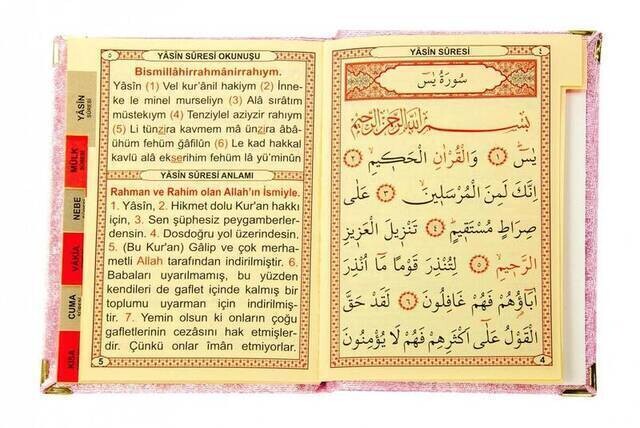 YÂSİN SÛRESİ
٤
سُورَةُ يٰسٓ
بِسْمِ اللّٰهِ الرَّحْمٰنِ الرَّحِيمِ
يٰسٓ ﴿١﴾ وَالْقُرْاٰنِ الْحَكِيمِ ﴿٢﴾
اِنَّكَ لَمِنَ الْمُرْسَلِينَ ﴿٣﴾ عَلٰى
صِرَاطٍ مُسْتَقِيمٍ ﴿٤﴾ تَنْزِيلَ الْعَزِيزِ
الرَّحِيمِ ﴿٥﴾ لِتُنْذِرَ قَوْمًا مَٓا اُنْذِرَ
اٰبَٓاؤُهُمْ فَهُمْ غَافِلُونَ ﴿٦﴾ لَقَدْ حَقَّ
الْقَوْلُ عَلٰٓى اَكْثَرِهِمْ فَهُمْ لَا يُؤْمِنُونَ
4
٥
YÂSİN SÛRESİ OKUNUŞU
Bismillâhirrahmânirrahıym.
Yâsîn (1) Vel kur'ânil hakiym (2) İnne-
ke le minel murseliyn (3) Alâ sırâtım
müstekıym (4) Tenziylel aziyzir rahıym
(5) Li tünzira kavmem mâ ünzira âbâ-
ühüm fehüm ğâfilûn (6) Le kad hakkal
kavlü alâ ekserihim fehüm lâ yü'minûn
YÂSİN SÛRESİ ANLAMI
Rahman ve Rahim olan Allah'ın İsmiyle.
1. Yâsîn, 2. Hikmet dolu Kur'an hakkı
için, 3. Sen şüphesiz peygamberler-
densin. 4. Dosdoğru yol üzerindesin.
5. (Bu Kur'an) Gâlip ve çok merha-
metli Allah tarafından indirilmiştir. 6.
Babaları uyarılmamış, bu yüzden
kendileri de gaflet içinde kalmış bir
toplumu uyarman için indirilmiş-
tir. 7. Yemin olsun ki onların çoğu
gafletlerinin cezasını hak etmişler-
dir. Çünkü onlar îman etmiyorlar.
5
YÂSİN
SÛRESİ
MÜLK
SÛRESİ
NEBE
VÂKIA
CUMA
KISA